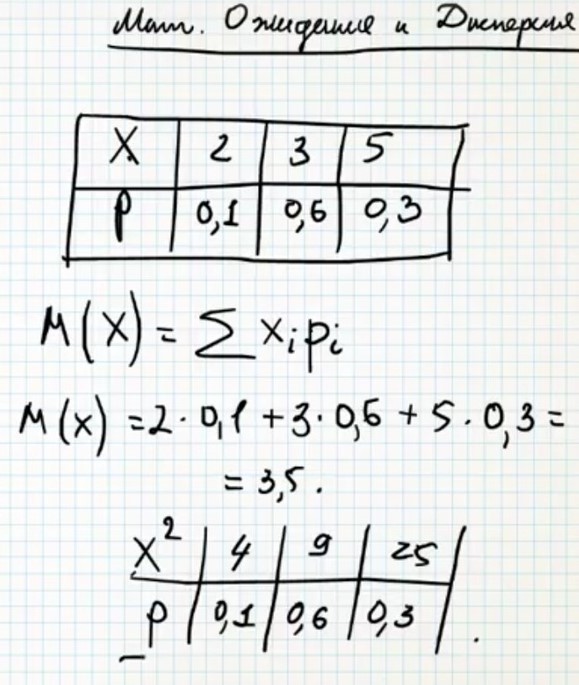 Мат. Ожидание и Дисперсия
X 2 3 5
P 0,1 0,6 0,3
M(X) = ∑ xᵢpᵢ
M(x) = 2 · 0,1 + 3 · 0,6 + 5 · 0,3 =
= 3,5.
X² 4 9 25
P 0,1 0,6 0,3.